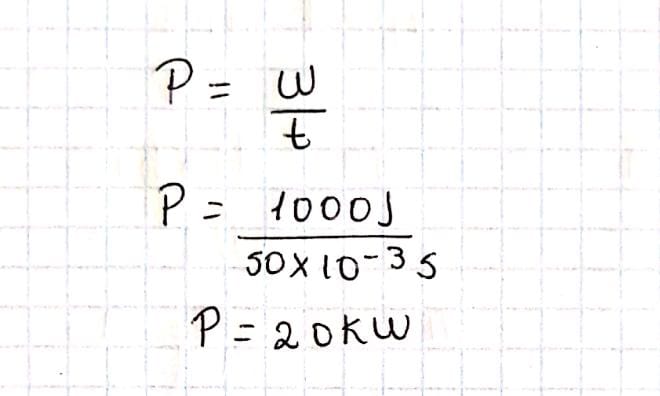 P = W/t
P = 1000J/50×10⁻³s
P = 20KW